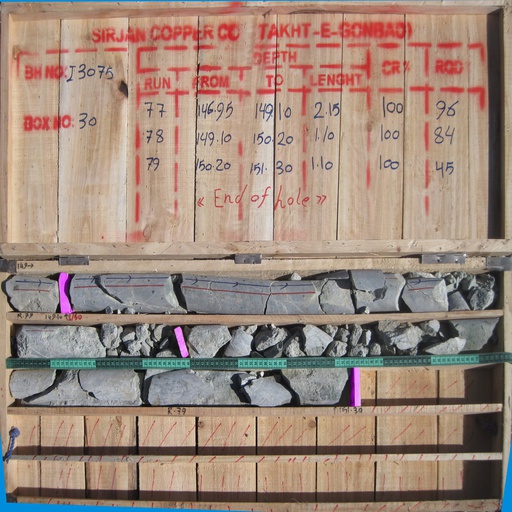 SIRJAN COPPER CO (TAKHT-E-GONBAD)
DEPTH
BH NO: I3075 RUN FROM TO LENGHT CR% RQD
BOX NO: 30
77 146.95 149.10 2.15 100 96
78 149.10 150.20 1.10 100 84
79 150.20 151.30 1.10 100 45
« End of hole »
R.79 151.30